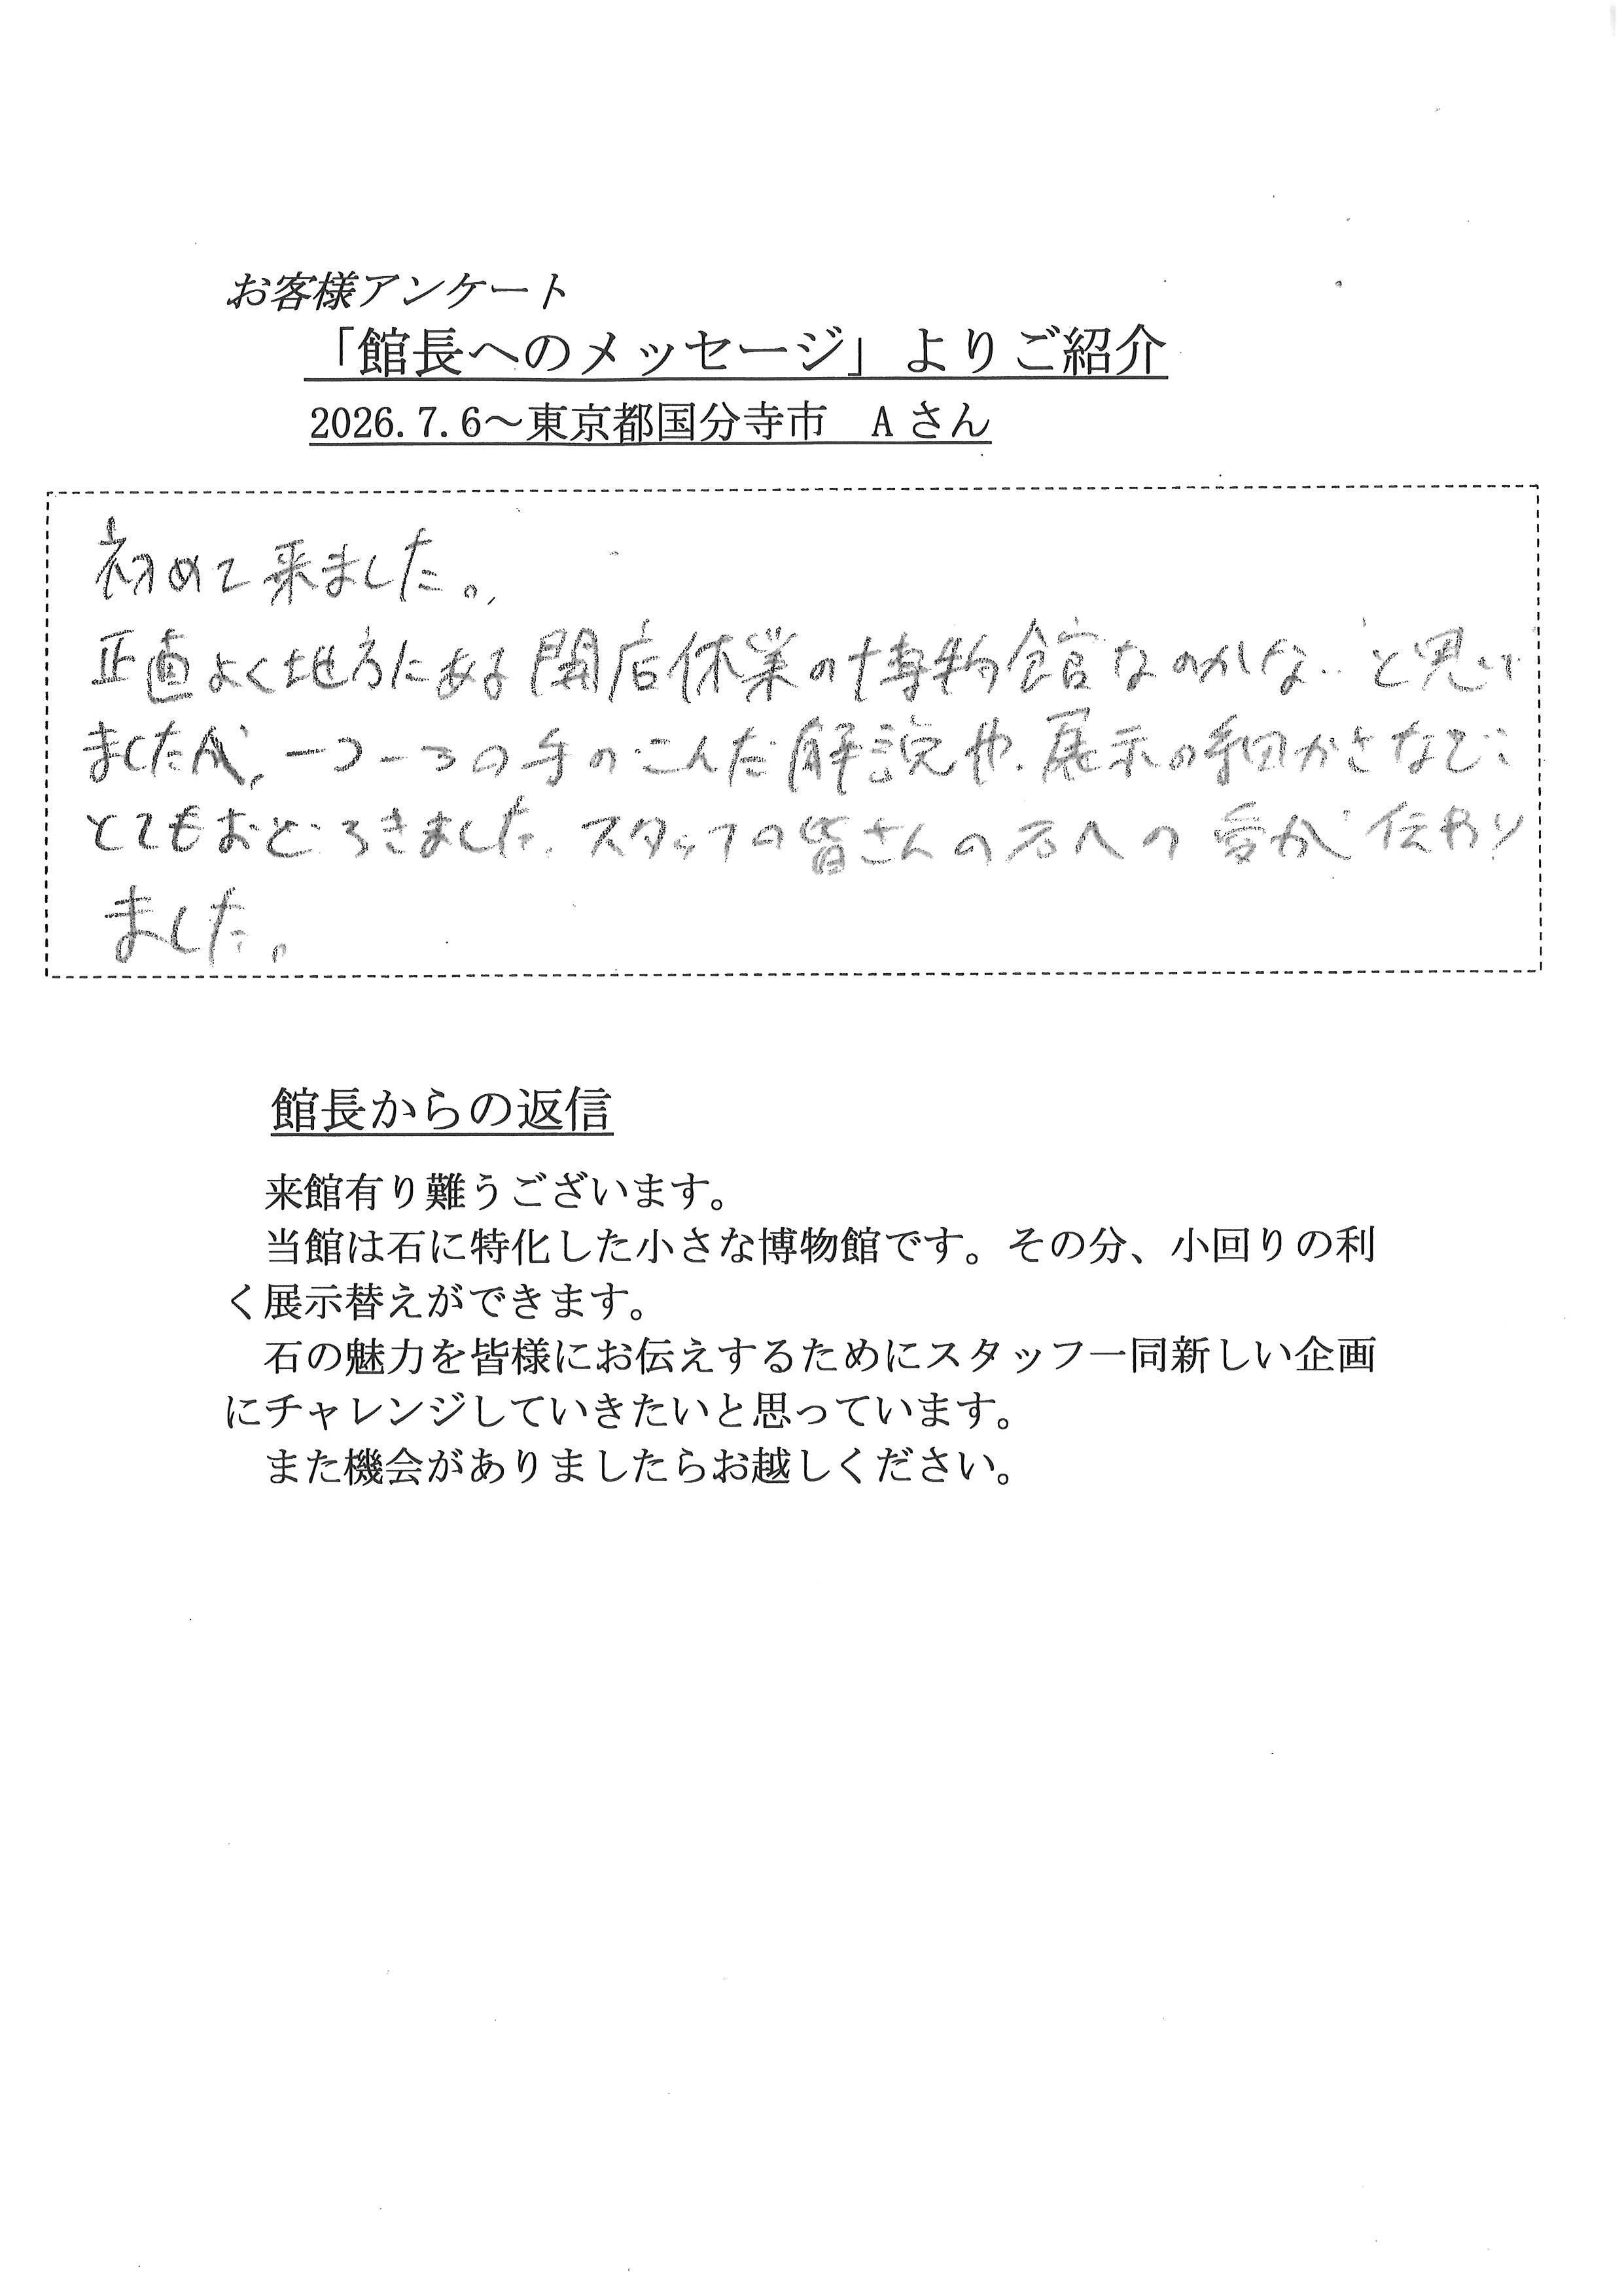 お客様アンケート
「館長へのメッセージ」よりご紹介
2026.7.6～東京都国分寺市　Aさん
初めて来ました。
正直よく地方にある開店休業の博物館なのかな‥と思い
ましたが、一つ一つの手のこんだ解説や、展示の細かさなど、
とてもおどろきました。スタッフの皆さんの石への愛が伝わり
ました。
館長からの返信
来館有り難うございます。
当館は石に特化した小さな博物館です。その分、小回りの利
く展示替えができます。
石の魅力を皆様にお伝えするためにスタッフ一同新しい企画
にチャレンジしていきたいと思っています。
また機会がありましたらお越しください。